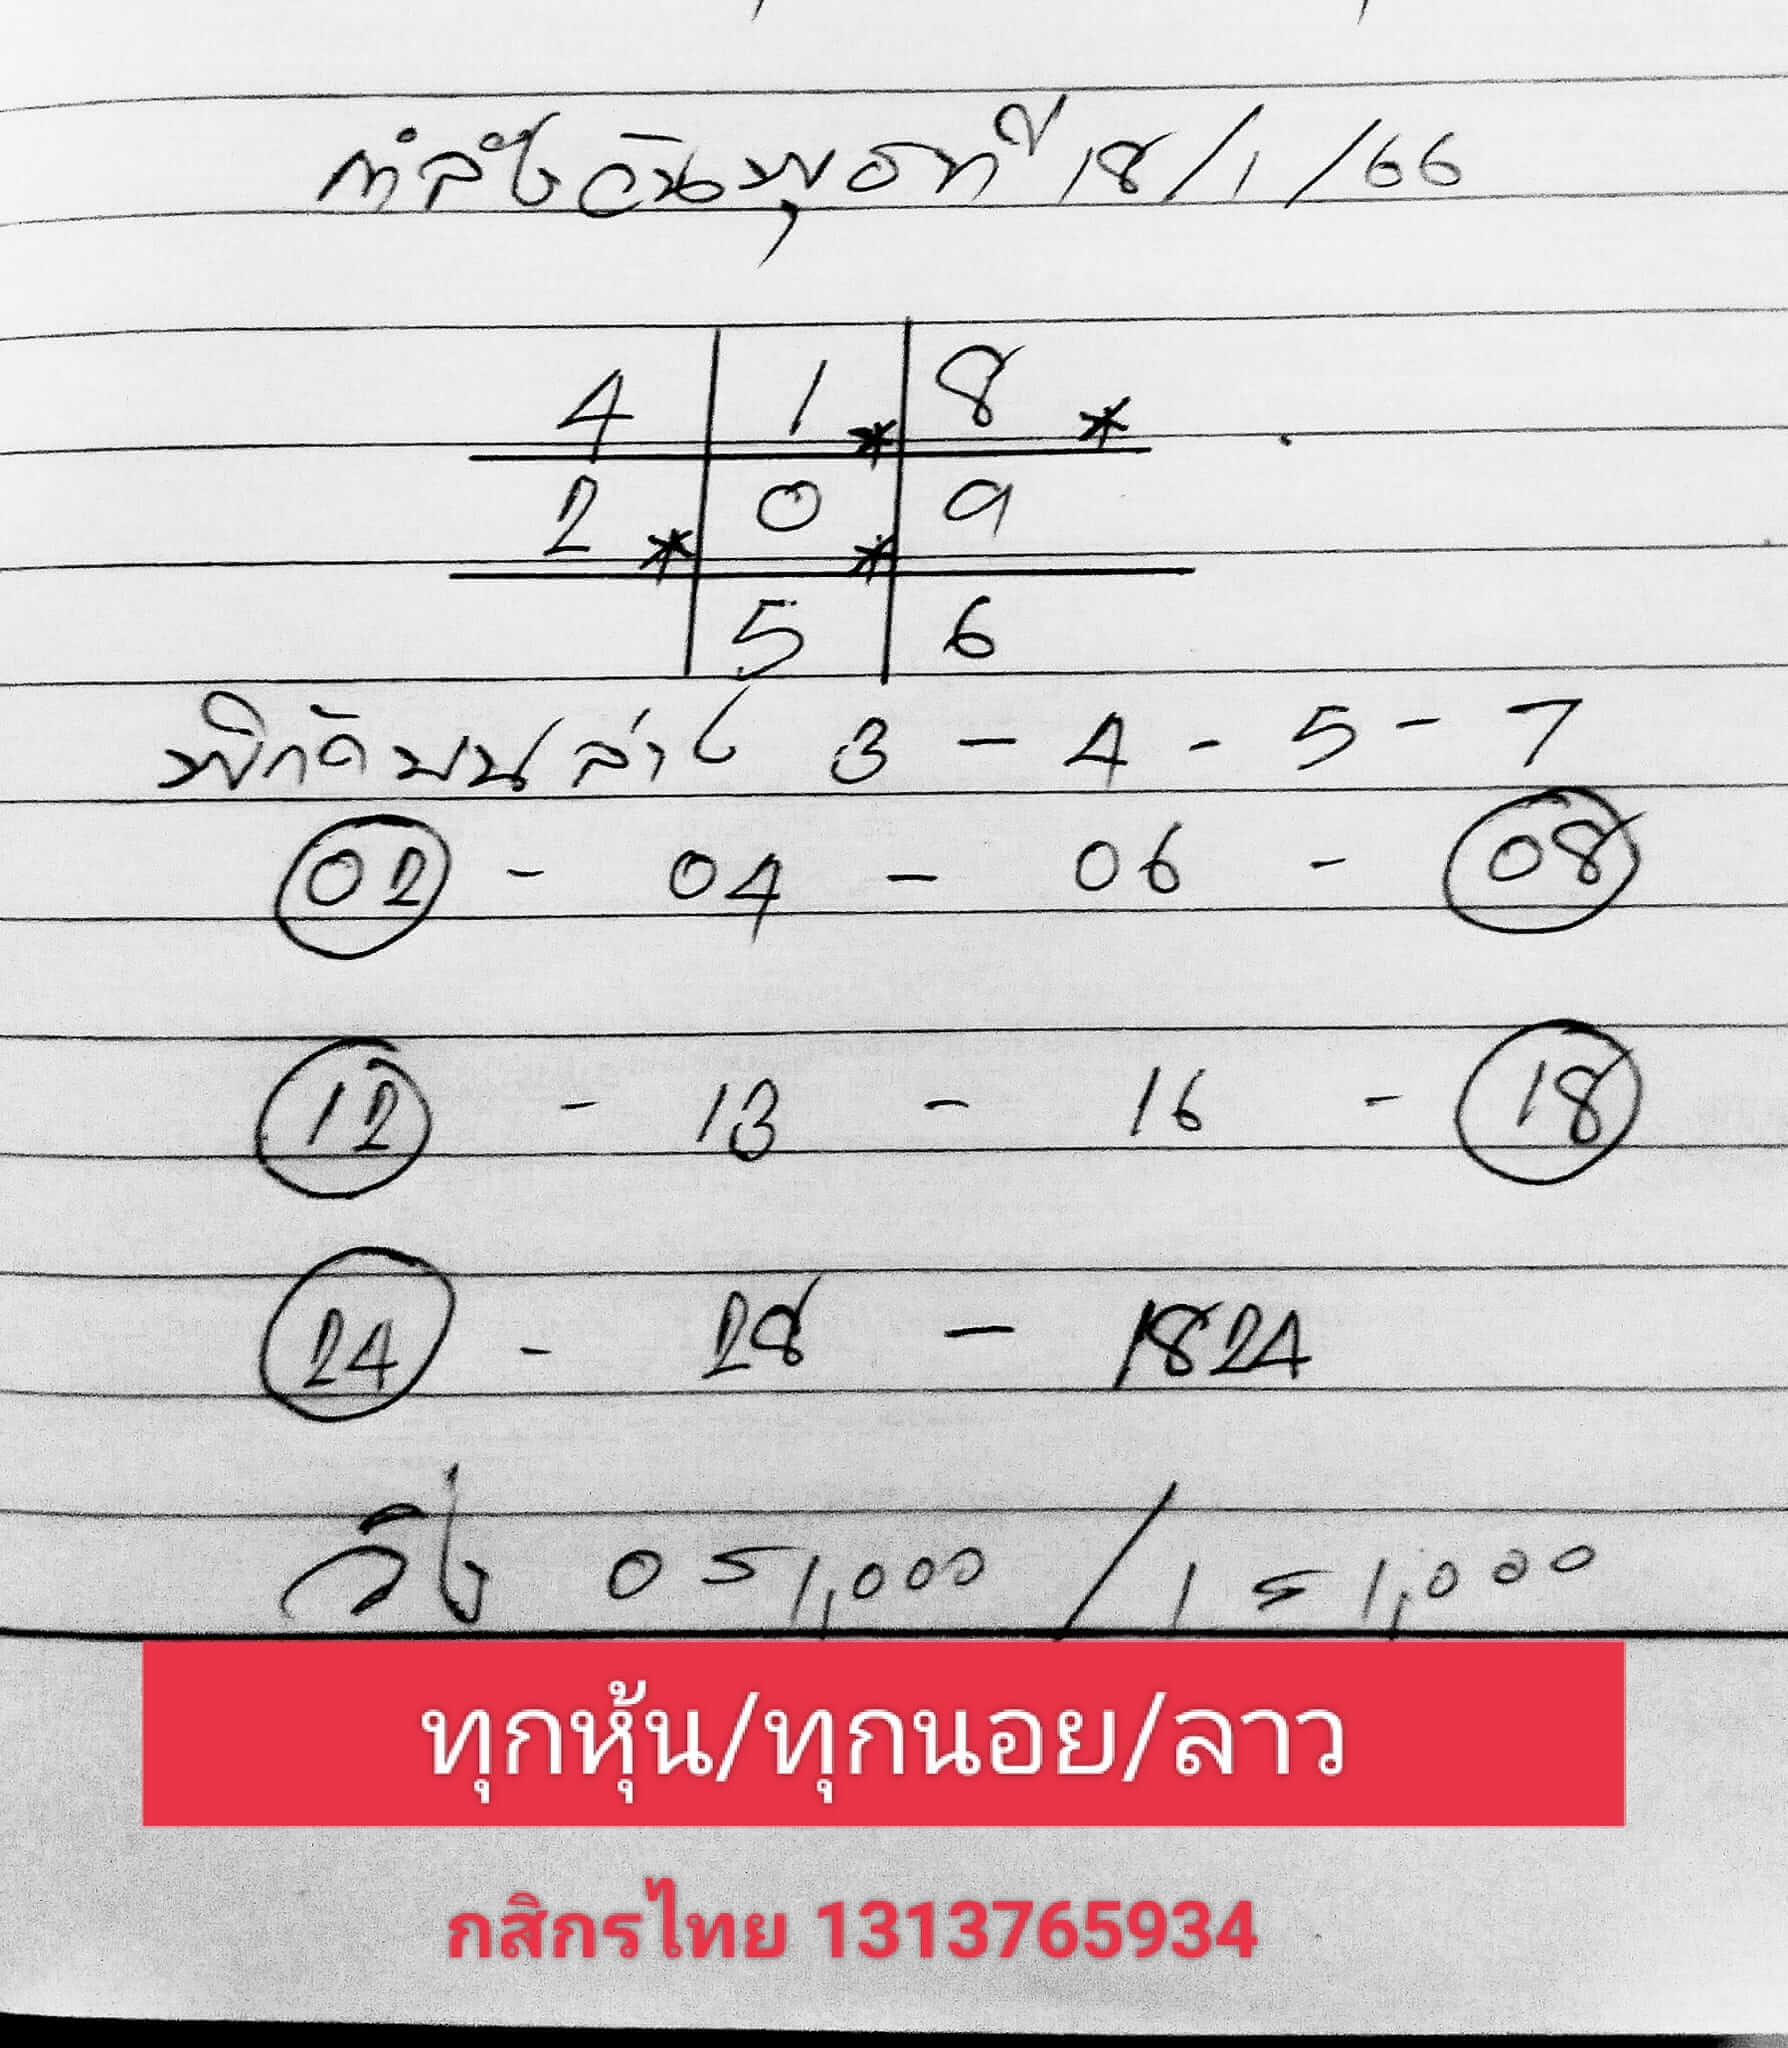 กำลังวันพุธที่ 18/1/66
4 1 8
2 0 9
5 6
พิกัดบนล่าง 3 - 4 - 5 - 7
02 - 04 - 06 - 08
12 - 13 - 16 - 18
24 - 28 - 1824
วิ่ง 0 = 1,000 / 1 = 1,000
ทุกหุ้น/ทุกนอย/ลาว
กสิกรไทย 1313765934